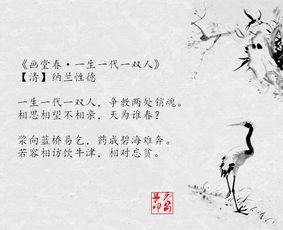 《画堂春·一生一代一双人》
【清】纳兰性德
一生一代一双人，争教两处销魂。
相思相望不相亲，天为谁春？
浆向蓝桥易乞，药成碧海难奔。
若容相访饮牛津，相对忘贫。